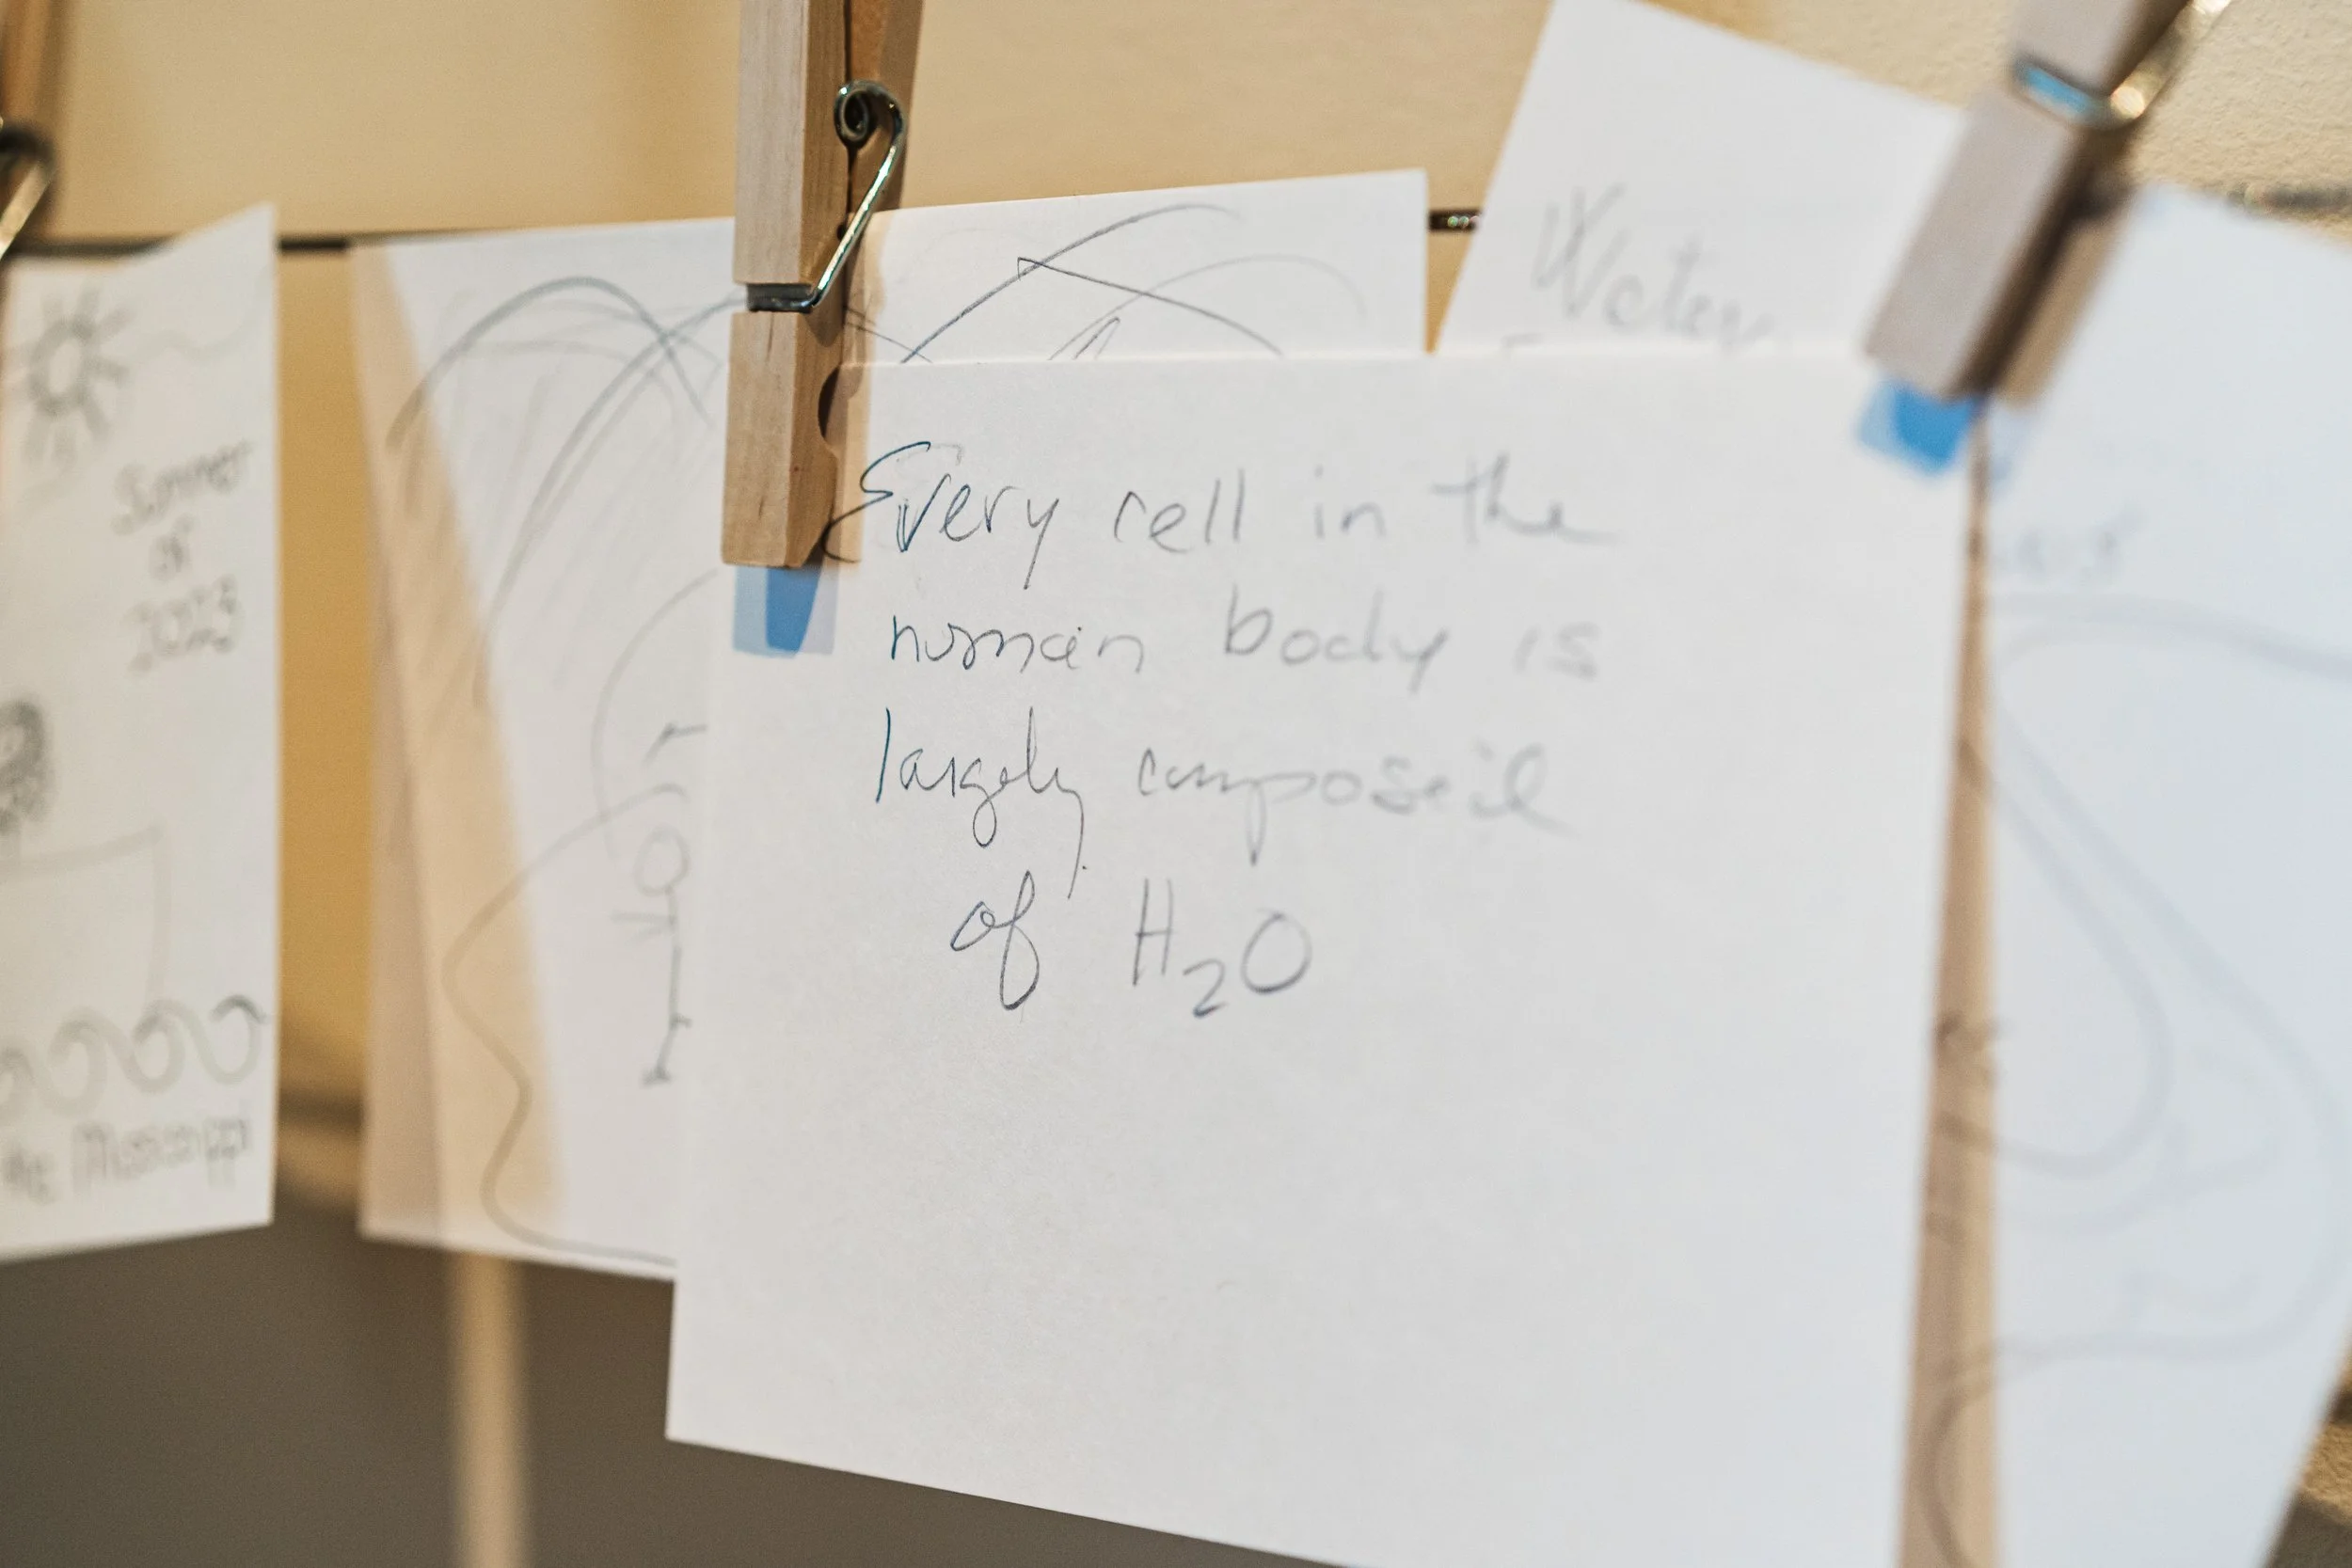 Summer
of
2023
the Mississippi
Every cell in the
human body is
largely composed
of H₂O
Water